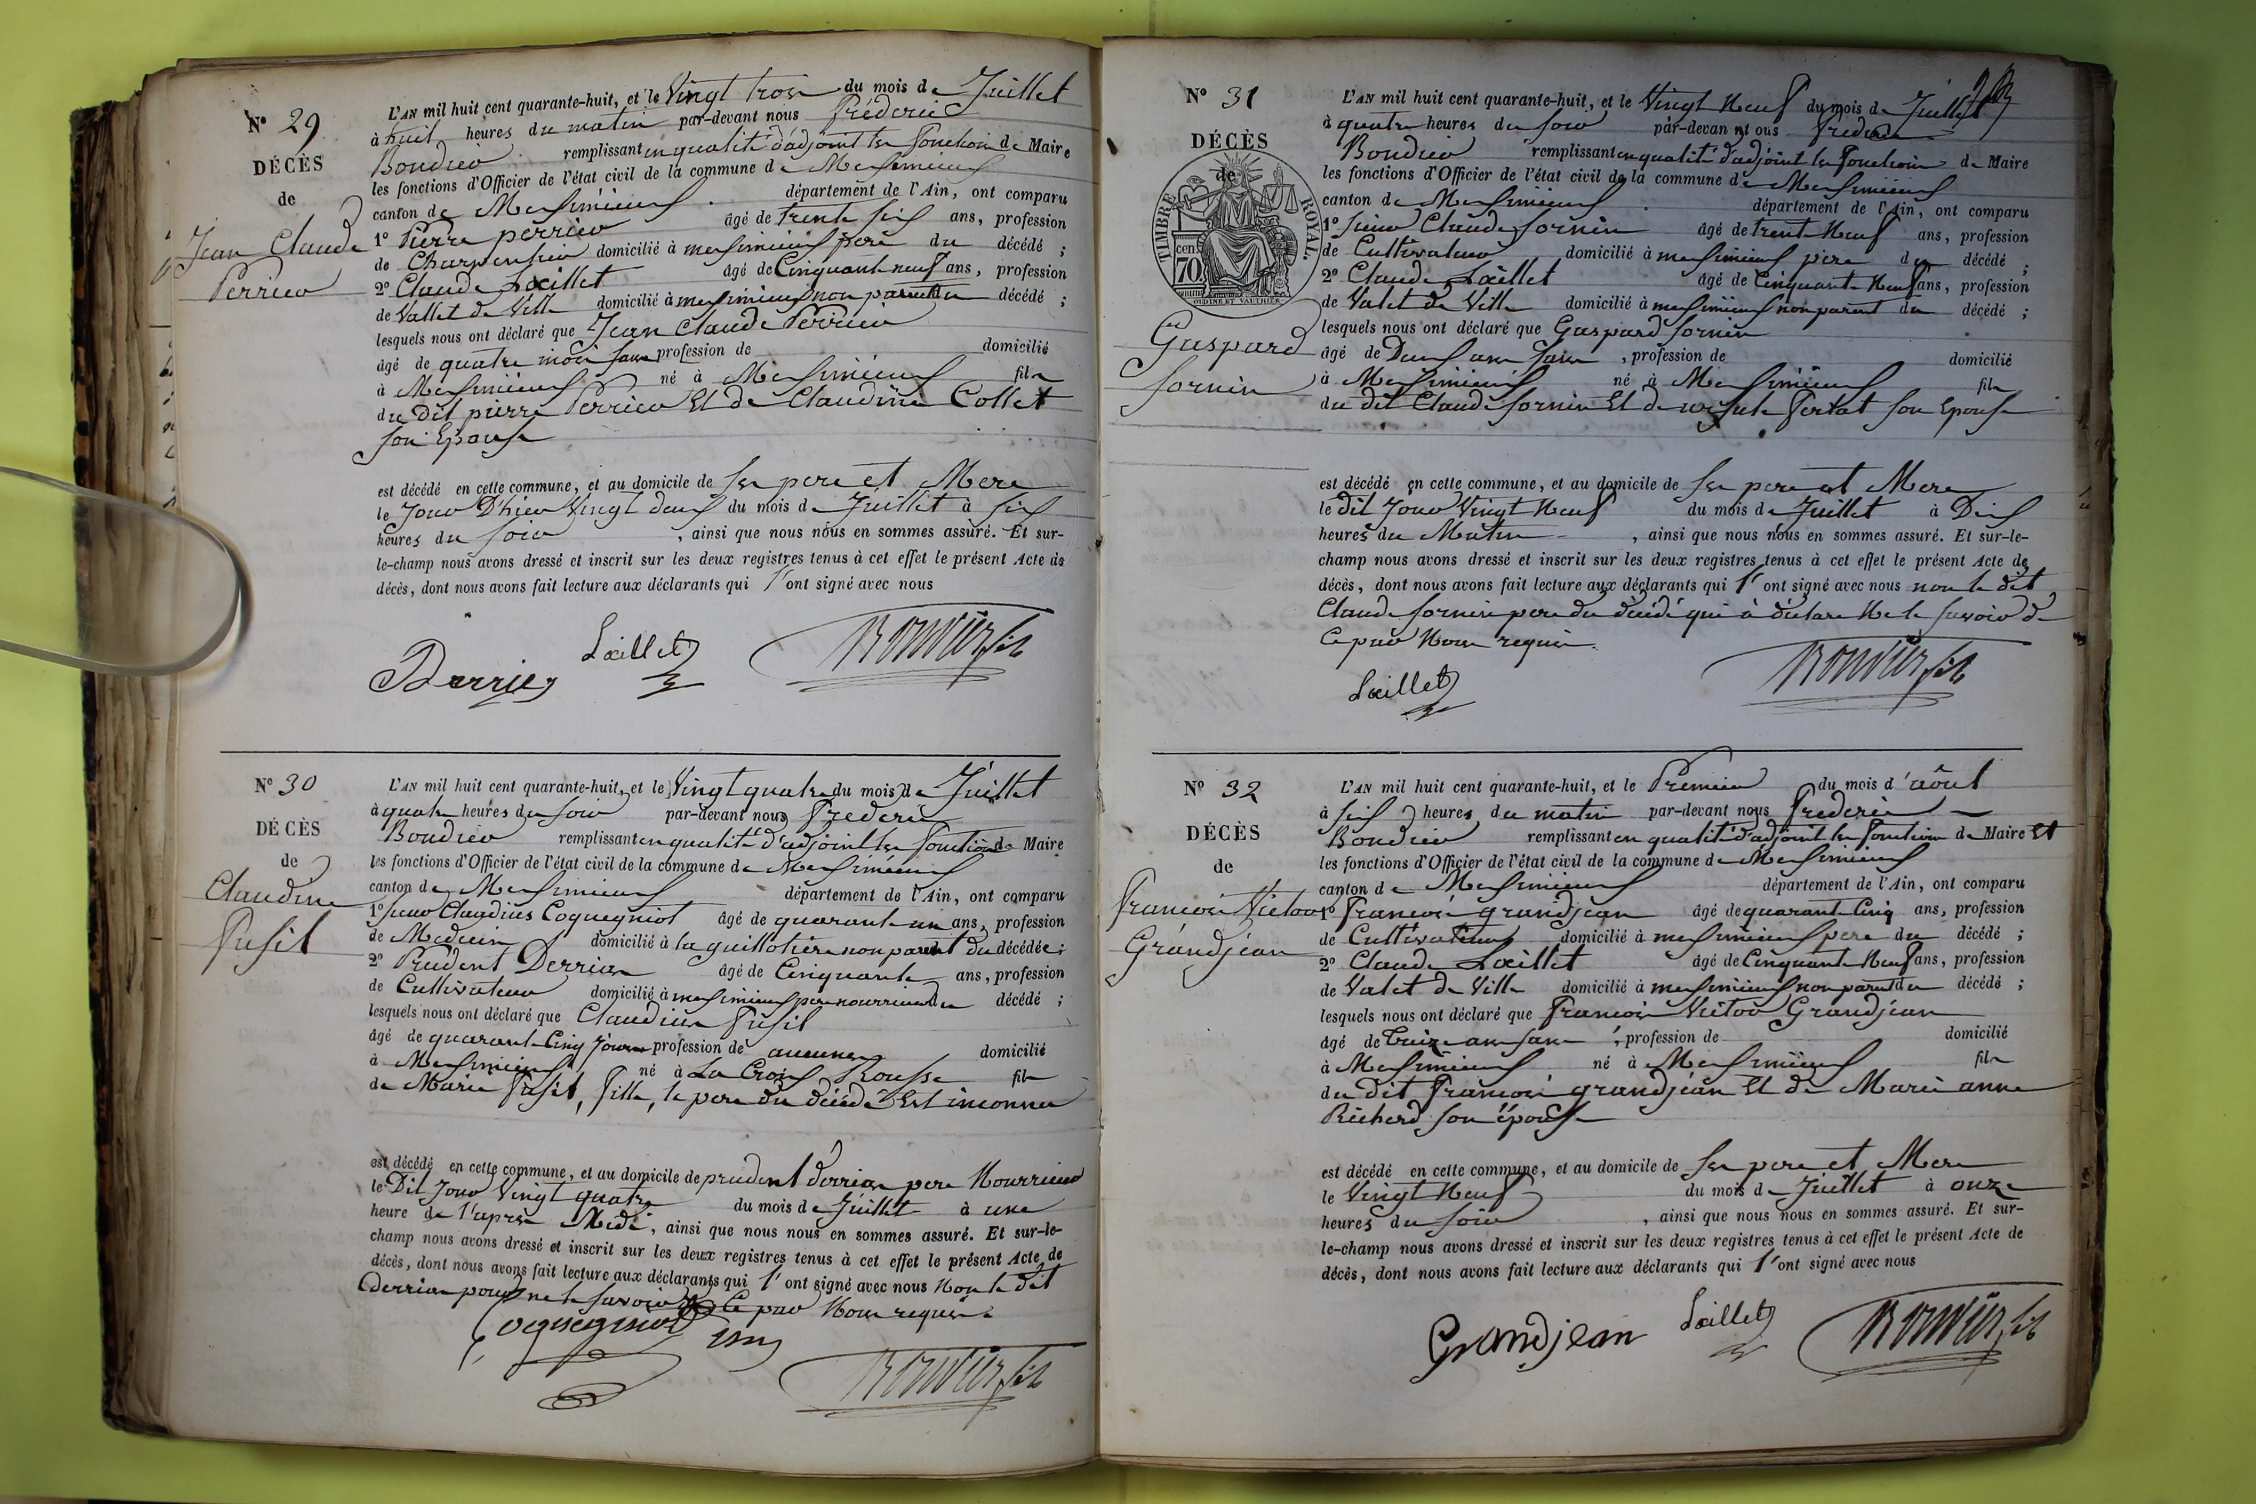 N° 29
DÉCÈS
de
Jean Claude
Perrier
L'AN mil huit cent quarante-huit, et le Vingt trois du mois de Juillet
à huit heures du matin par-devant nous Fréderic
remplissant en qualité d'adjoint les fonctions de Maire
les fonctions d'Officier de l'état civil de la commune de Meximieux
canton de Meximieux département de l'Ain, ont comparu
1° Pierre perrier âgé de trente six ans, profession
de Charpentier domicilié à meximieux pere du décédé ;
2° Claude Loeillet âgé de Cinquante neuf ans, profession
de Vallet de Ville domicilié à meximieux non parent du décédé ;
lesquels nous ont déclaré que Jean Claude Perrier
âgé de quatre mois sans profession de domicilié
à Meximieux né à Meximieux fils
du dit pierre Perrier Et de Claudine Collet
son Epouse
est décédé en cette commune, et au domicile de ses pere et Mere
le Jour D'hier Vingt deux du mois de Juillet à six
heures du soir , ainsi que nous nous en sommes assuré. Et sur-
le-champ nous avons dressé et inscrit sur les deux registres tenus à cet effet le présent Acte de
décès, dont nous avons fait lecture aux déclarants qui l'ont signé avec nous
Perrier Loeillet
N° 30
DÉCÈS
de
Claudius
Fusil
L'AN mil huit cent quarante-huit, et le Vingt quatre du mois de Juillet
à quatre heures du soir par-devant nous Frederic
remplissant en qualité d'adjoint les fonctions de Maire
les fonctions d'Officier de l'état civil de la commune de Meximieux
canton de Meximieux département de l'Ain, ont comparu
1° sieur Claudius Coquegniot âgé de quarante un ans, profession
de Medecin domicilié à la guillotière non parent du décédée ;
2° Prudent Derrias âgé de Cinquante ans, profession
de Cultivateur domicilié à meximieux pere nourricier du décédé ;
lesquels nous ont déclaré que Claudius Fusil
âgé de quarante Cinq jours profession de aucunes domicilié
à Meximieux né à La Croix Rousse fils
de Marie Fusil, fille, le pere du décédé Est inconnu
est décédé en cette commune, et au domicile de prudent derrias pere Nourricier
le Dit Jour Vingt quatre du mois de Juillet à une
heure de l'après Midi , ainsi que nous nous en sommes assuré. Et sur-le-
champ nous avons dressé et inscrit sur les deux registres tenus à cet effet le présent Acte de
décès, dont nous avons fait lecture aux déclarants qui l'ont signé avec nous Non le dit
derrias pour ne le savoir de Ce par Nous requis
Coquegniot
N° 31
DÉCÈS
de
TIMBRE ROYAL
70 cen
OUDINÉ ET VAUTHIER
Gaspard
Sornin
L'AN mil huit cent quarante-huit, et le Vingt Neuf du mois de Juillet
à quatre heures du soir par-devan nt ous Frederic
remplissant en qualité d'adjoint les fonctions de Maire
les fonctions d'Officier de l'état civil de la commune de Meximieux
canton de Meximieux département de l'Ain, ont comparu
1° sieur Claude Sornin âgé de trente Neuf ans, profession
de Cultivateur domicilié à meximieux pere du décédé ;
2° Claude Loeillet âgé de Cinquante Neuf ans, profession
de Valet de Ville domicilié à meximieux non parent du décédé ;
lesquels nous ont déclaré que Gaspard Sornin
âgé de Deux ans sans , profession de domicilié
à Meximieux né à Meximieux fils
du dit Claude Sornin Et de ursule Fertat son Epouse
est décédé en cette commune, et au domicile de ses pere et Mere
le dit Jour Vingt Neuf du mois de Juillet à Dix
heures du Matin , ainsi que nous nous en sommes assuré. Et sur-le-
champ nous avons dressé et inscrit sur les deux registres tenus à cet effet le présent Acte de
décès, dont nous avons fait lecture aux déclarants qui l'ont signé avec nous non le dit
Claude Sornin pere du décédé qui à déclare Ne le savoir de
Ce par Nous requis
Loeillet
N° 32
DÉCÈS
de
Francois Victor
Grandjean
L'AN mil huit cent quarante-huit, et le Premier du mois d'aôut
à six heures du matin par-devant nous Frederic
remplissant en qualité d'adjoint les fonctions de Maire Et
les fonctions d'Officier de l'état civil de la commune de Meximieux
canton de Meximieux département de l'Ain, ont comparu
1° Francois grandjean âgé de quarante Cinq ans, profession
de Cultivateur domicilié à meximieux pere du décédé ;
2° Claude Loeillet âgé de Cinquante Neuf ans, profession
de Valet de Ville domicilié à meximieux non parent du décédé ;
lesquels nous ont déclaré que Francois Victor Grandjean
âgé de treize ans sans , profession de domicilié
à Meximieux né à Meximieux fils
du dit Francois grandjean Et de Marie anne
Richerd son épouse
est décédé en cette commune, et au domicile de ses pere et Mere
le Vingt Neuf du mois de Juillet à onze
heures du soir , ainsi que nous nous en sommes assuré. Et sur-
le-champ nous avons dressé et inscrit sur les deux registres tenus à cet effet le présent Acte de
décès, dont nous avons fait lecture aux déclarants qui l'ont signé avec nous
Grandjean Loeillet